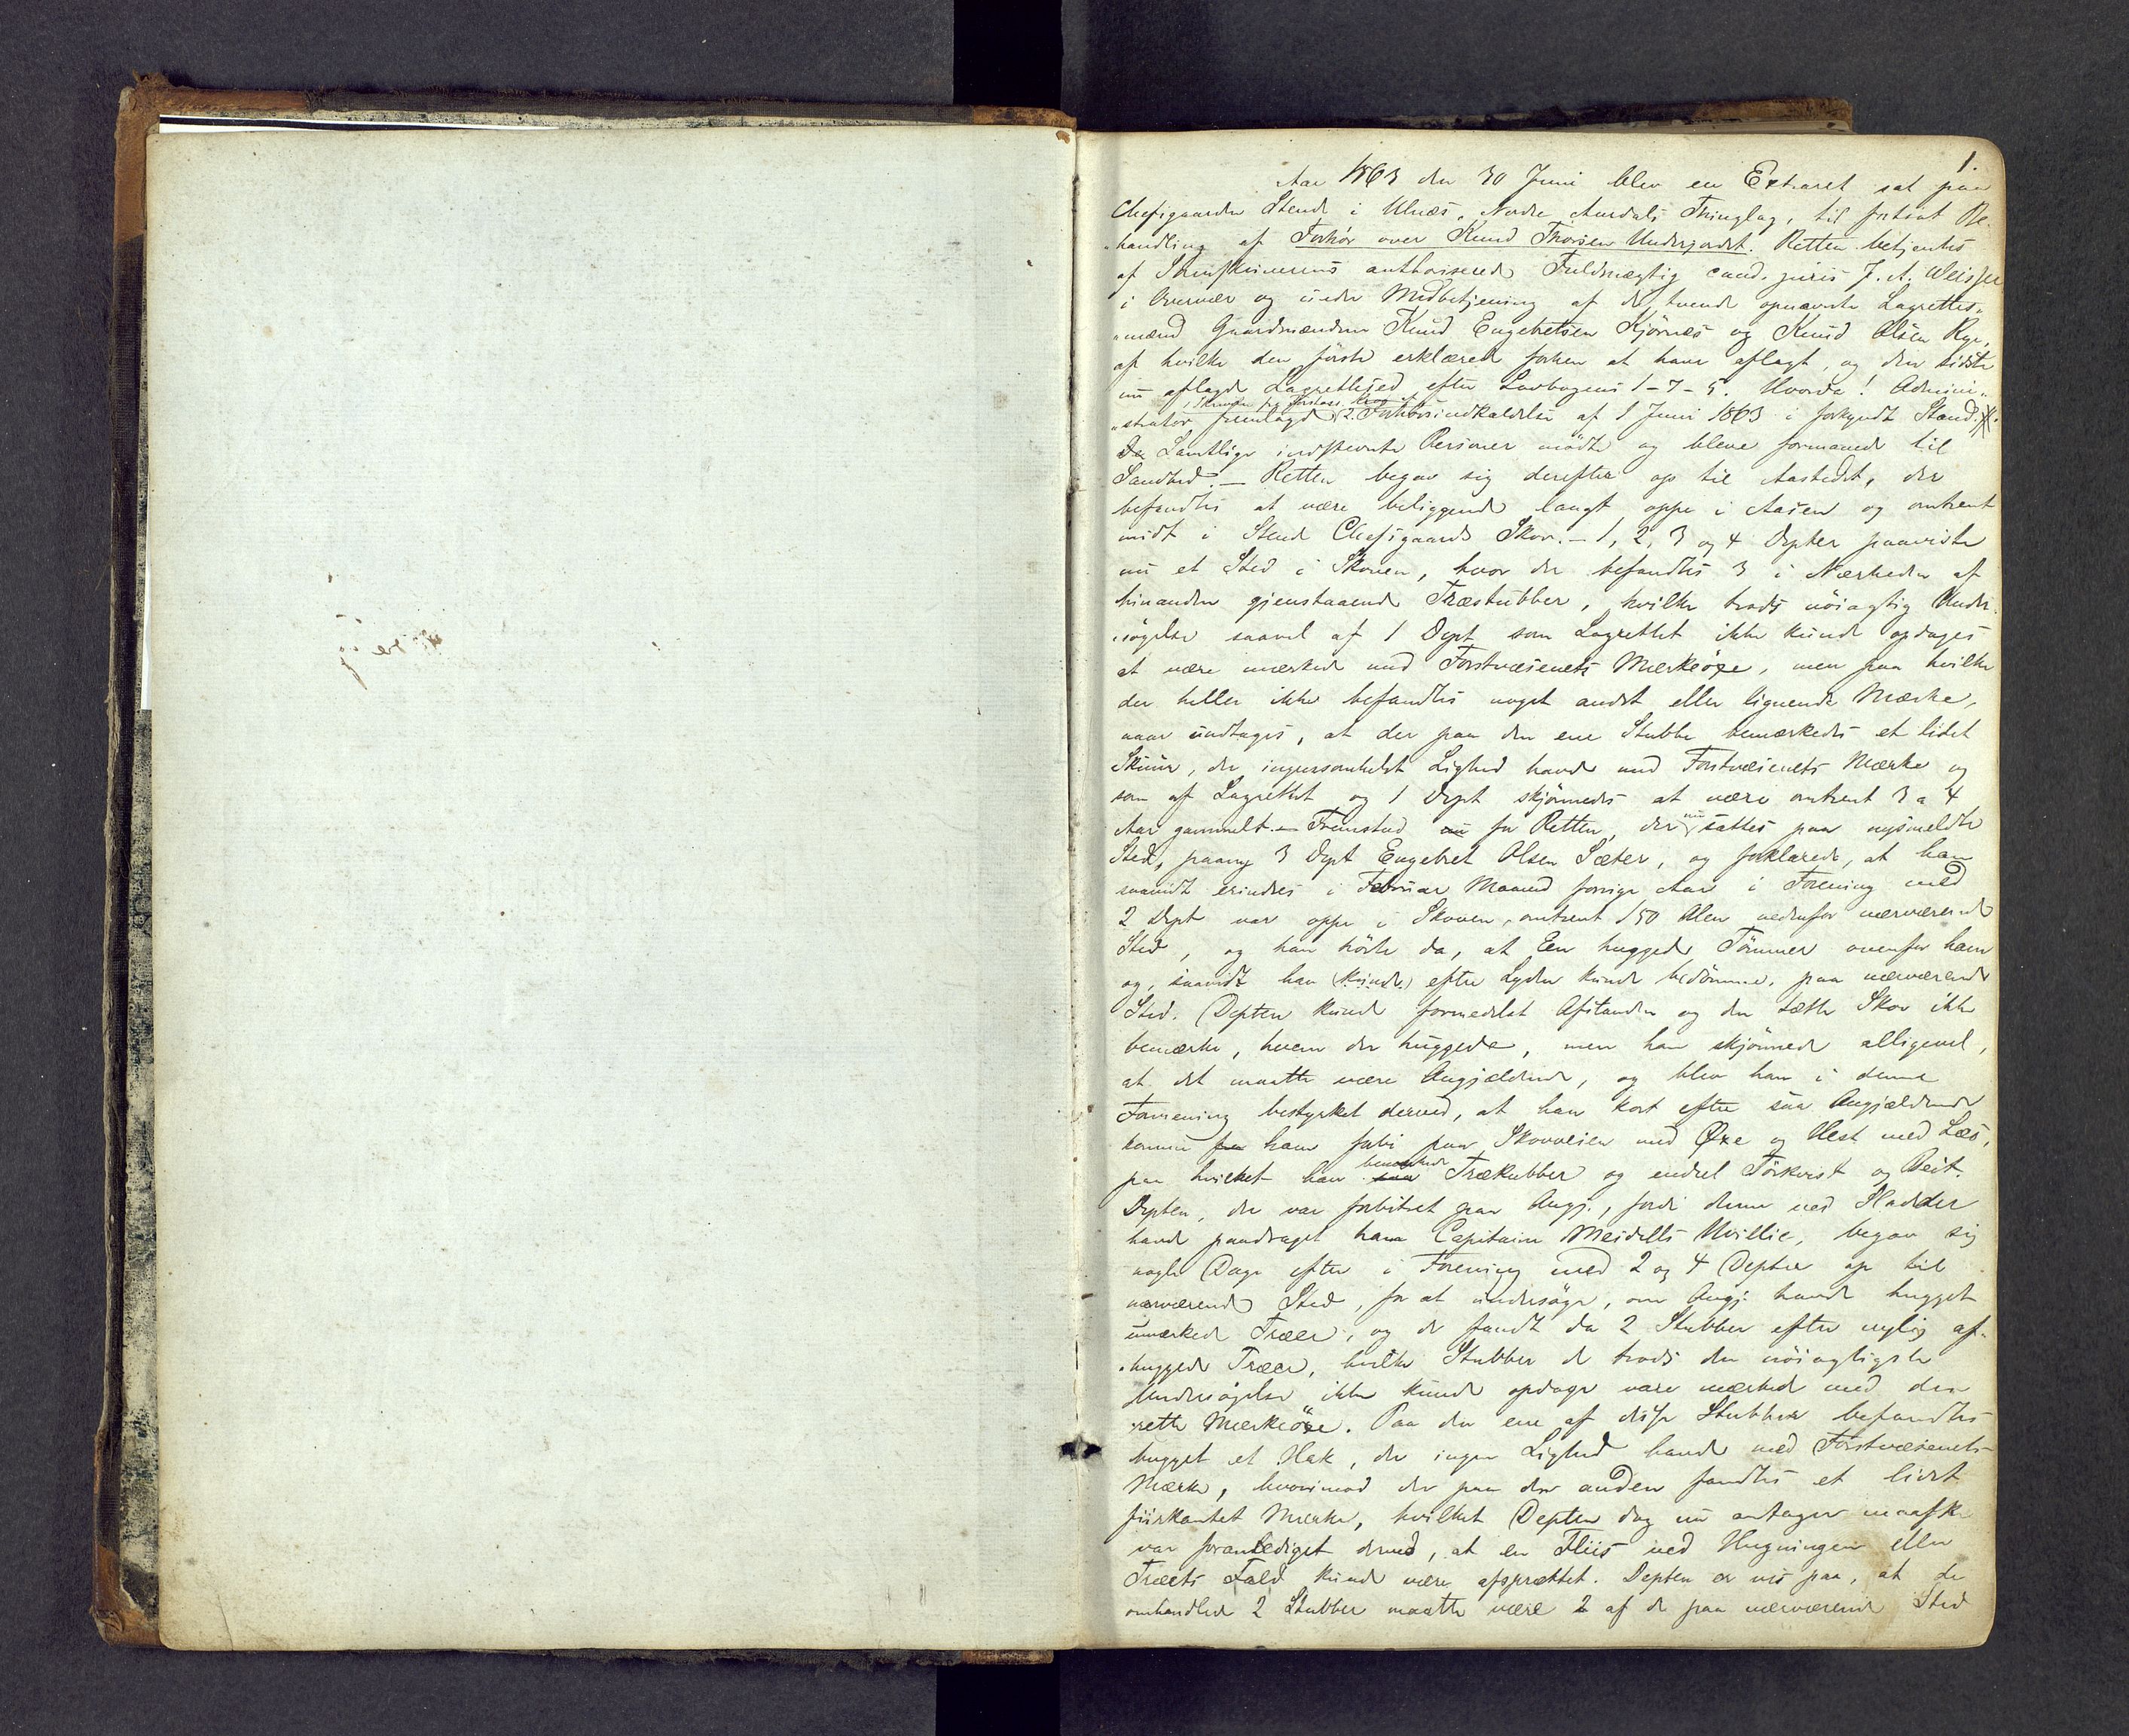 1.
Aar 1863 den 30 Juni blev en Extraret sat paa
Chefsgaarden Stende i Ulnæs, Nordre Aurdals Thinglag, til fortsat Be-
handling af Forhør over Knud Thorsen Underjordet. Retten betjentes
af Sorenskriverens authoriserede Fuldmægtig cand. juris J. A. Weisser
i Overvær og under Medbetjening af de tvende opnævnte Lagrettes-
mænd Gaardmændene Knud Engebretsen Kjörnæs og Knud Olsen Rye,
af hvilke den förste erklærede forhen at have aflagt, og den sidste
nu aflagde Lagrettesed efter Lovbogens 1-7-5. Hvorda! Admini-
strator fremlagde 2. Forhörsindkaldelse af 1 Juni 1863 i forkyndt Stand.
Samtlige indstevnte Personer mödte og bleve formanede til
Sandhed. – Retten begav sig derefter op til Aastedet, der
befandtes at være beliggende langt oppe i Aasen og omtrent
midt i Stende Chefsgaards Skov. – 1, 2, 3 og 4 Depter paaviste
nu et Sted i Skoven, hvor der befandtes 3 i Nærheden af
hinanden gjenstaaende Træstubber, hvilke trods nöiagtig Under-
sögelse saavel af 1 Dept som Lagrettet ikke kunde opdages
at være mærkede med Forstvæsenets Mærkeöxe, men paa hvilke
der heller ikke befandtes noget andet eller lignende Mærke,
naar undtages, at der paa den ene Stubbe bemærkedes et lidet
Skuur, der ingensomhelst Lighed havde med Forstvæsenets Mærke og
som af Lagrettet og 1 Dept skjönnedes at være omtrent 3 a 4
Aar gammelt. – Fremstod for Retten, der nu sattes paa nysmeldte
Sted, paany 3 Dept Engebret Olsen Sæter, og forklarede, at han
saavidt erindres i Februar Maaned forrige Aar i Forening med
2 Dept var oppe i Skoven, omtrent 150 Alen nedenfor nærværende
Sted, og han hörte da, at Een huggede Tömmer ovenfor ham
og, saavidt han (kunde) efter Lyden kunde bedömme, paa nærværende
Sted. Depten kunde formedelst Afstanden og den tætte Skov ikke
bemærke, hvem der huggede, men han skjönnede alligevel,
at det maatte være Angjældende, og blev han i denne
Formening bestyrket derved, at han kort efter saa Angjældende
komme ham forbi paa Skovveien med Øxe og Hest med Læs,
paa hvilket han bemærkede Trækubber og endeel Törkvist og Beit.
Depten, der var forbitret paa Angj., fordi denne ved Sladder
havde paadraget ham Capitaine Meidells Uvillie, begav sig
nogle Dage efter i Forening med 2 og 4 Depter op til
nærværende Sted, for at undersöge, om Angj. havde hugget
umærkede Træer, og de fandt da 2 Stubber efter nylig af-
huggede Træer, hvilke Stubber de trods den nöiagtigste
Undersögelse ikke kunde opdage være mærkede med den
rette Mærkeöxe. Paa den ene af disse Stubber befandtes
hugget et Hak, der ingen Lighed havde med Forstvæsenets
Mærke, hvorimod der paa den anden fandtes et lidet
fiirkantet Mærke, hvilket Depten dog nu antager maaske
var foranlediget derved, at en Fliis ved Hugningen eller
Træets Fald kunde være afsprættet. Depten er vis paa, at de
omhandlede 2 Stubber maatte være 2 af de paa nærværende Sted